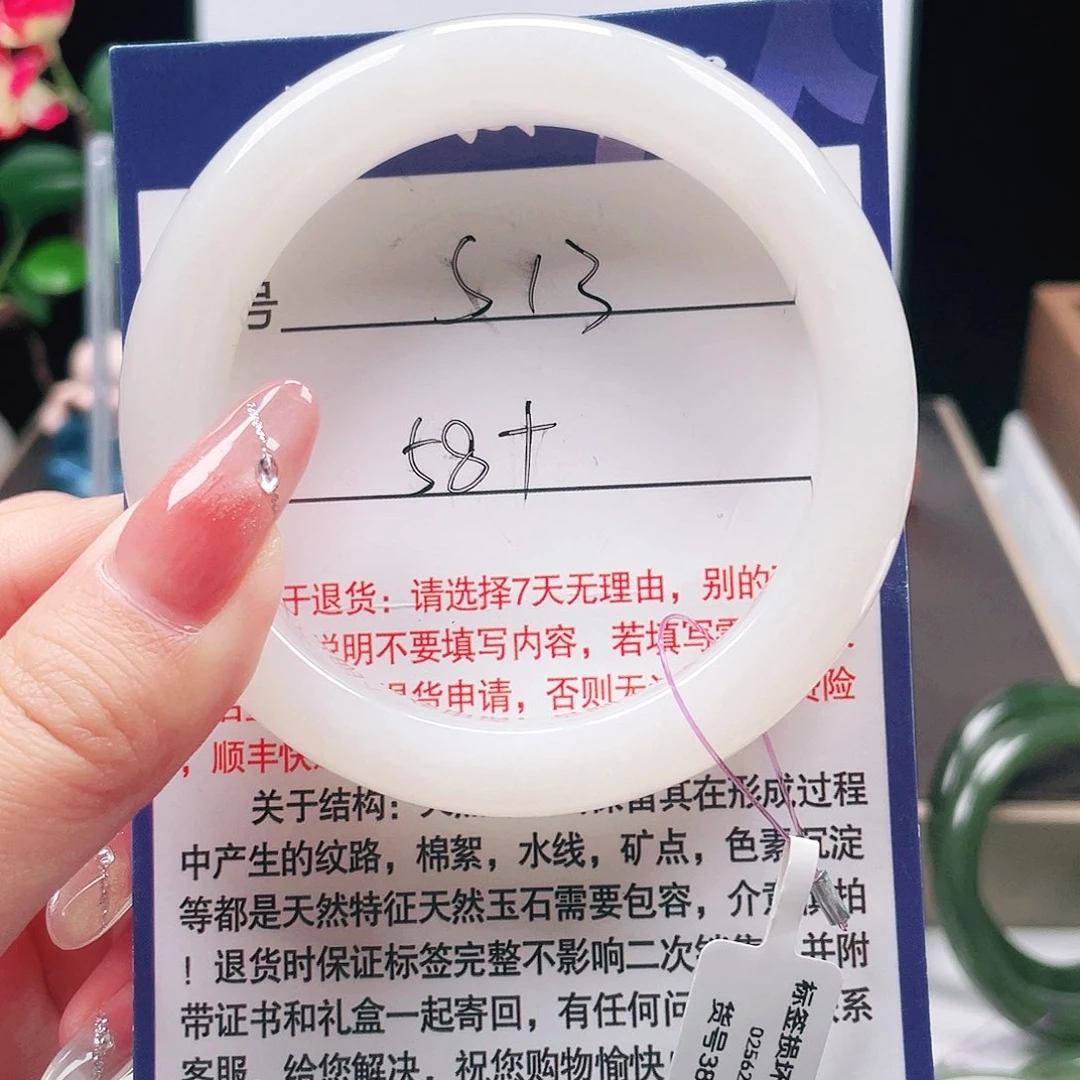 号 513
58+
于退货：请选择7天无理由，别的
说明不要填写内容，若填写
退货申请，否则无 险
，顺丰快
关于结构： 保留其在形成过程
中产生的纹路，棉絮，水线，矿点，色素沉淀
等都是天然特征天然玉石需要包容，介意慎拍
！退货时保证标签完整不影响二次销售 并附
带证书和礼盒一起寄回，有任何问 系
客服，给您解决，祝您购物愉快
标签损坏
02562
货号38